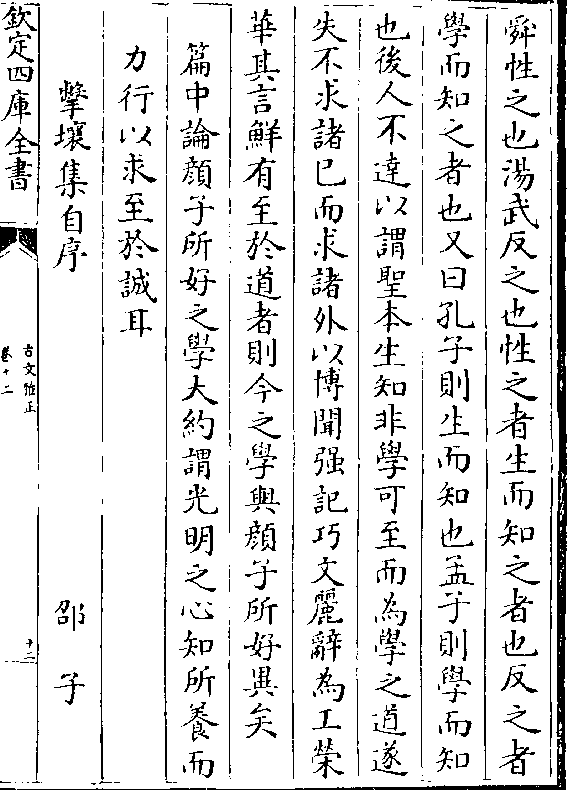 舜性之也湯武反之也性之者生而知之者也反之者
學而知之者也又曰孔子則生而知也孟子則學而知
也後人不達以謂聖本生知非學可至而為學之道遂
失不求諸已而求諸外以博聞强記巧文麗辭為工榮
華其言鮮有至於道者則今之學與顔子所好異矣
篇中論顔子所好之學大約謂光明之心知所養而
力行以求至於誠耳
擊壤集自序 邵子
欽定四庫全書
古文雅正
卷十二
十二